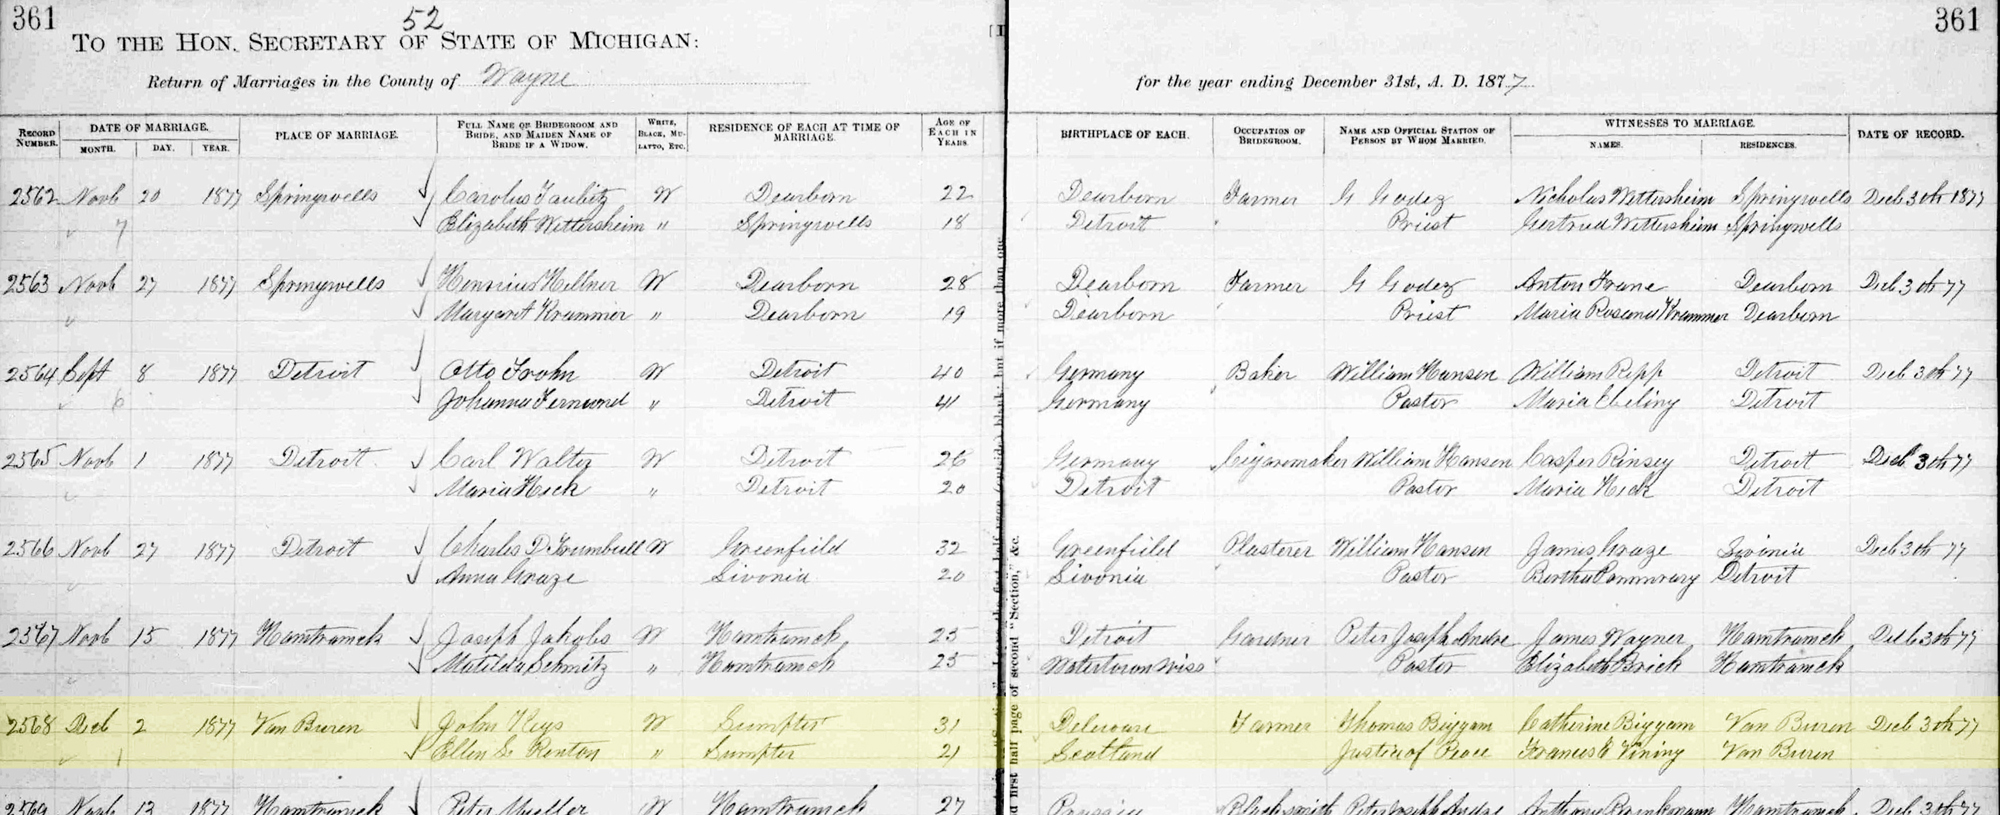 361 52 361
TO THE HON. SECRETARY OF STATE OF MICHIGAN:
Return of Marriages in the County of Wayne for the year ending December 31st, A. D. 1877
RECORD NUMBER. DATE OF MARRIAGE. MONTH. DAY. YEAR. PLACE OF MARRIAGE. FULL NAME OF BRIDEGROOM AND BRIDE, AND MAIDEN NAME OF BRIDE IF A WIDOW. WHITE, BLACK, MULATTO, ETC. RESIDENCE OF EACH AT TIME OF MARRIAGE. AGE OF EACH IN YEARS. BIRTHPLACE OF EACH. OCCUPATION OF BRIDEGROOM. NAME AND OFFICIAL STATION OF PERSON BY WHOM MARRIED. WITNESSES TO MARRIAGE. NAMES. RESIDENCES. DATE OF RECORD.
2562 Novb 20 1877 Springwells Carolus Taubitz W Dearborn 22 Dearborn Farmer G Godez Nicholas Wittersheim Springwells Decb 30th 1877
7 Elizabeth Wittersheim " Springwells 18 Detroit Priest Gertrud Wittersheim Springwells
2563 Novb 27 1877 Springwells Henricus Hellner W Dearborn 28 Dearborn Farmer G Godez Anton Dearborn Decb 30th 77
Margaret Krammer " Dearborn 19 Dearborn Priest Maria Krammer Dearborn
2564 Sept 8 1877 Detroit Otto Frohn W Detroit 40 Germany Baker William Hansen William Ripp Detroit Decb 30th 77
6 Johanna " Detroit 41 Germany Pastor Maria Ebeling Detroit
2565 Novb 1 1877 Detroit Carl Walter W Detroit 26 Germany Cigaromaker William Hansen Casper Kinsey Detroit Decb 30th 77
Maria Heck " Detroit 20 Detroit Pastor Maria Heck Detroit
2566 Novb 27 1877 Detroit Charles D Trumbull W Greenfield 32 Greenfield Plasterer William Hansen James Graze Livonia Decb 30th 77
Anna Graze Livonia 20 Livonia Pastor Bertha Detroit
2567 Novb 15 1877 Hamtramck Joseph Jakobs W Hamtramck 25 Detroit Gardner Peter Joseph Andre James Wayner Hamtramck Decb 30th 77
Matilda Schmitz " Hamtramck 25 Watertown Wiss Pastor Elizabeth Brick Hamtramck
2568 Decb 2 1877 Van Buren John Keys W Sumpter 31 Deleware Farmer Thomas Biggam Catherine Biggam Van Buren Decb 30th 77
1 Ellen S. Renton " Sumpter 21 Scotland Justice of Peace Frances E Vining Van Buren
2569 Novb 13 1877 Hamtramck Peter Mueller W Hamtramck 27 Prussia Blacksmith Peter Joseph Andre Anthony Brinkmann Hamtramck Decb 30th 77